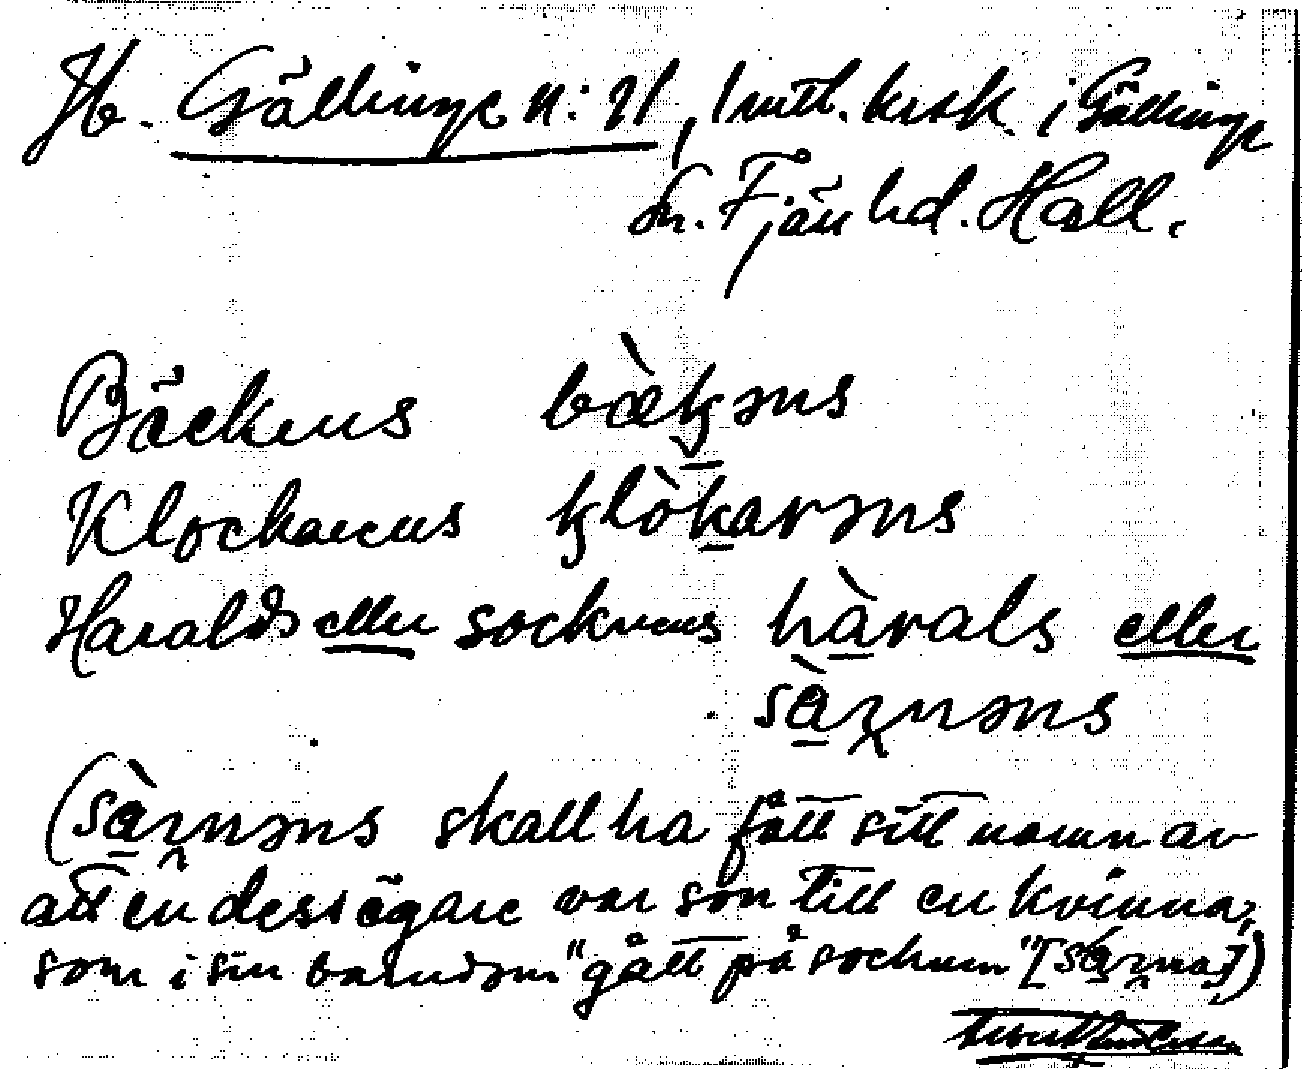 Hb. Gällinge n: 21, 1 mtl. krsk. i Gällinge
sn. Fjäre hd. Hall.
Bäckens bæ̀kəns
Klockarens klòkarəns
Haralds eller socknens hàrals eller
sàɤnəns
(sàɤnəns skall ha fått sitt namn av
att en dess ägare var son till en kvinna,
som i sin barndom "gått på socknen" [sàɤna])